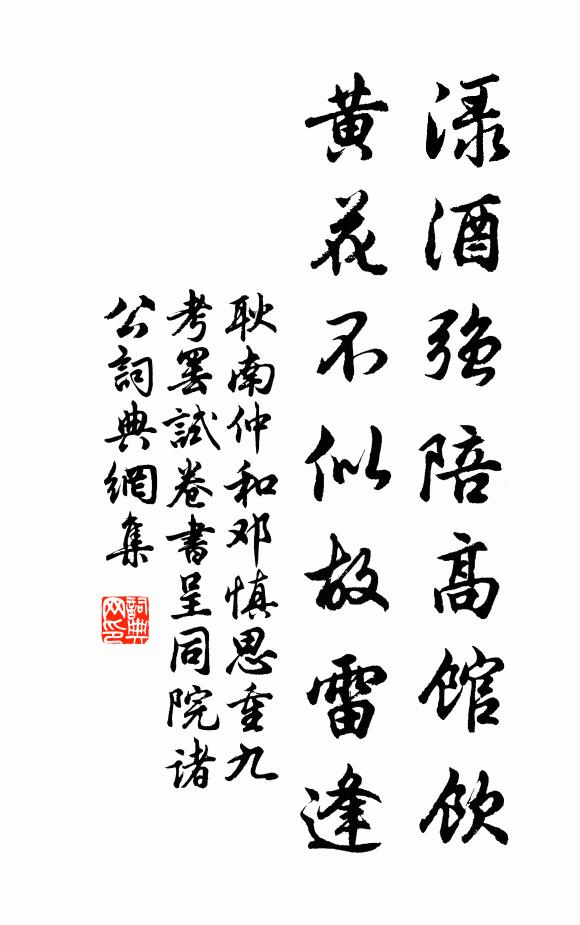 渌酒强陪高馆饮
黄花不似故雷逢
耿南仲和邓慎思重九
考罢試卷書呈同院诸
公詞典網集
詞典网印